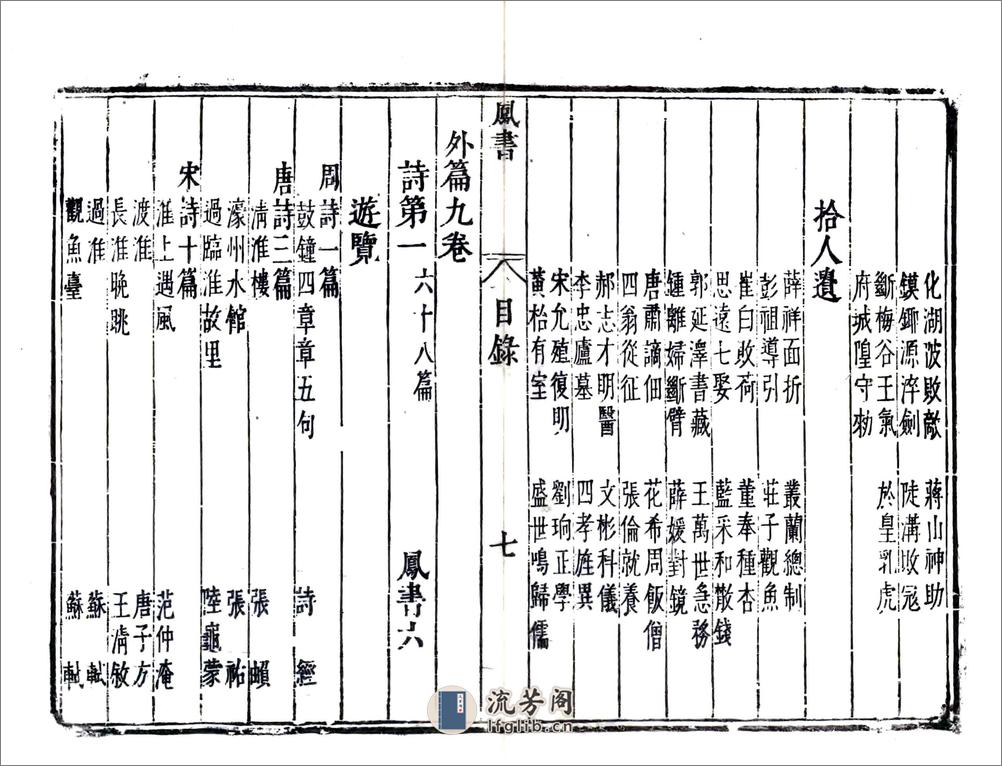 化湖波敗敵　蔣山神助
鏌鋣源淬劍　陡溝敗寇
斷梅谷王氣　於皇乳虎
府城隍守勑
拾人遺
薛祥面折　叢蘭總制
彭祖導引　莊子觀魚
崔白敗荷　董奉種杏
思遠七娶　藍采和散錢
郭延澤書藏　王萬世急務
鍾離婦斷臂　薛媛對鏡
唐肅謫佃　花希周飯僧
四翁從征　張倫就養
郝志才明醫　文彬科儀
李忠廬墓　四孝旌異
宋允殖復明　劉珦正學
黃枱有室　盛世鳴歸儒
鳳書　目錄　七
外篇九卷
詩第一　六十八篇　鳳書六
遊覽
周詩一篇
鼓鐘四章章五句　詩經
唐詩三篇
清淮樓　張頔
濠州水館　張祐
過臨淮故里　陸龜蒙
宋詩十篇
淮上遇風　范仲淹
渡淮　唐子方
長淮晚眺　王清敏
過淮　蘇軾
觀魚臺　蘇軾
流芳阁
lfglib.cn